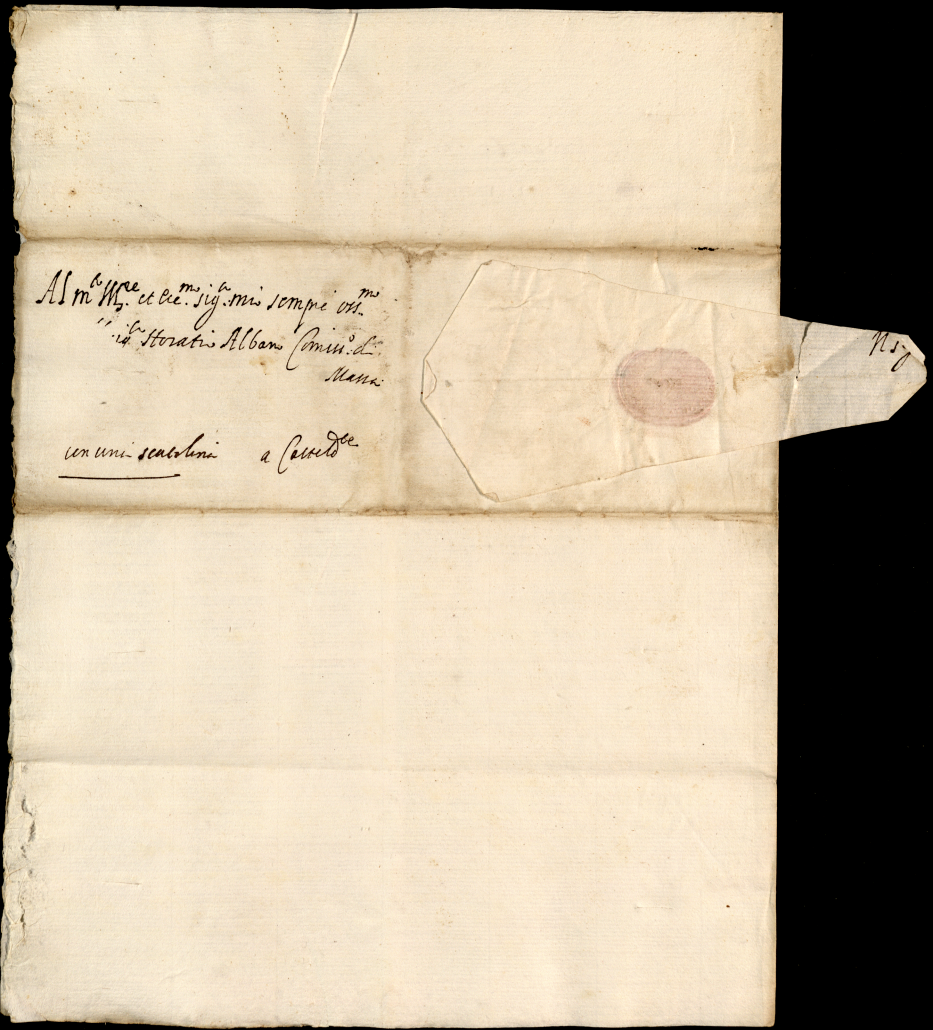 Al m.to Ill.re et ecc.mo sig.r mio sempre oss.mo
Horatio Albano Comiss.o d
Massa
con una scatolina a Casteld.te